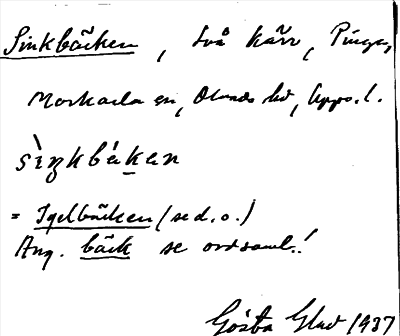 Sinkbäcken, två kärr, Pinga,
Morkarla sn, Olands hd, Upps. l.
sìŋkbäkan
= Igelbäcken (se d. o.)
Ang. bäck se ordsaml.!
Gösta Glad 1937